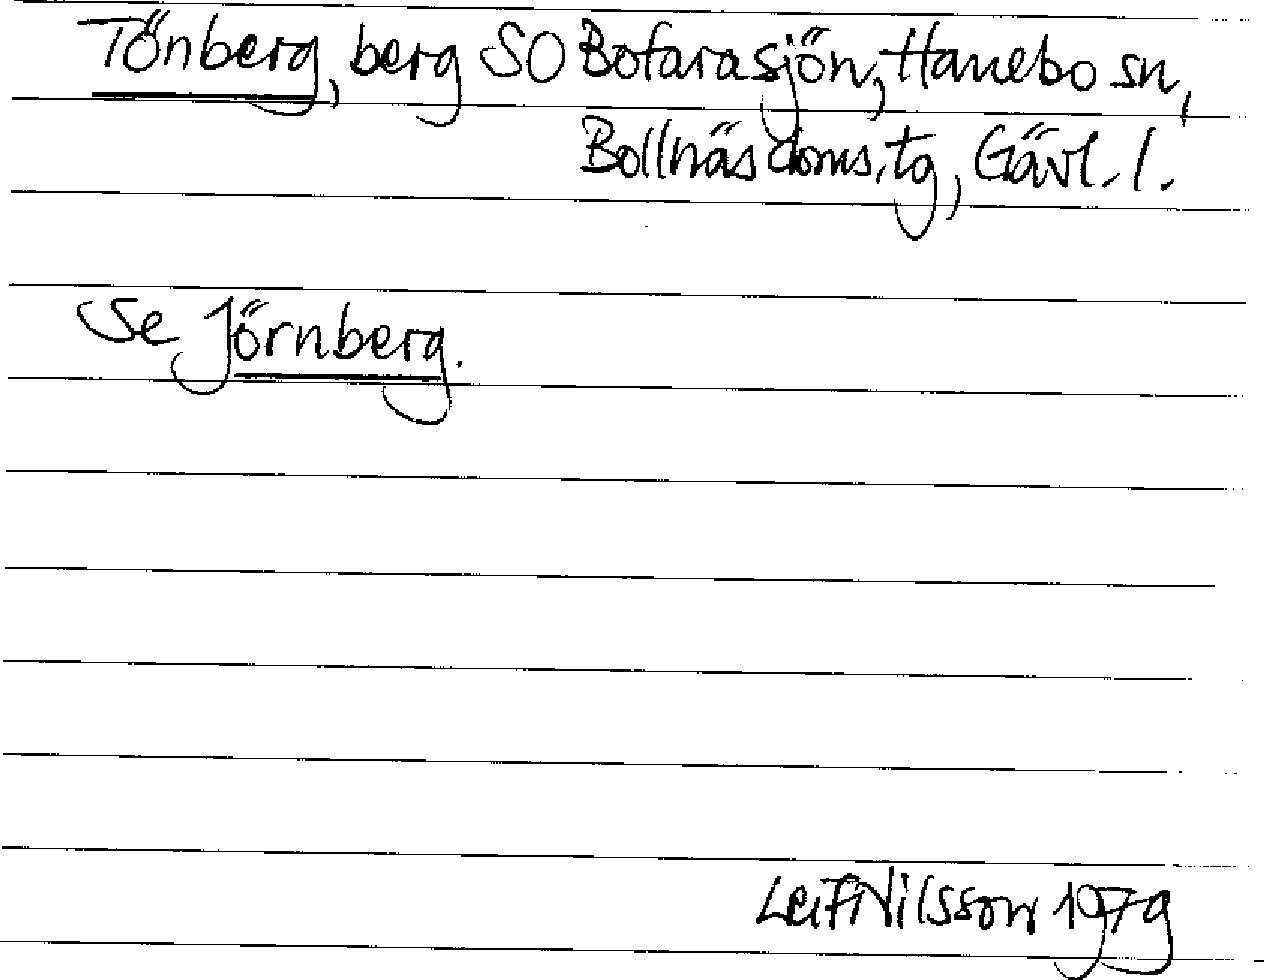 Tönberg, berg SO Bofarasjön, Hanebo sn,
Bollnäs doms. tg, Gävl. l.
Se Jörnberg.
Leif Nilsson 1979